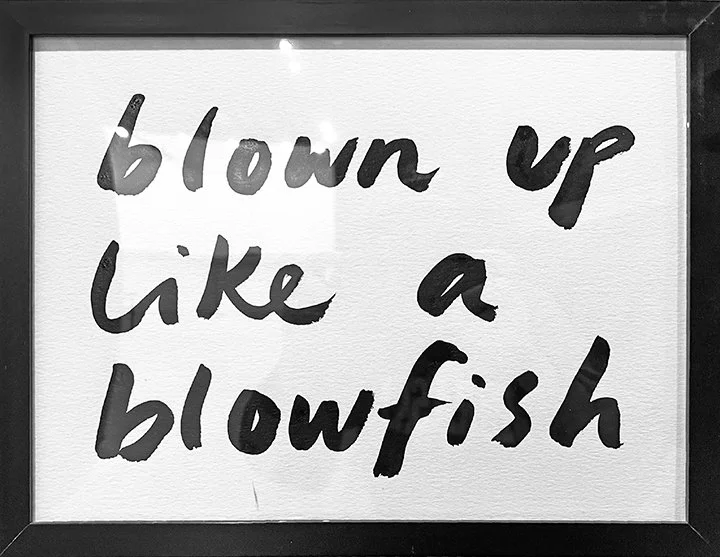 blown up
like a
blowfish